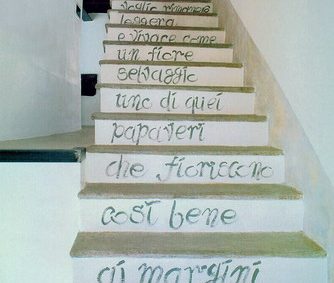 voglio rimanere
leggera
e vivace come
un fiore
selvaggio
uno di quei
papaveri
che fioriscono
così bene
ai margini